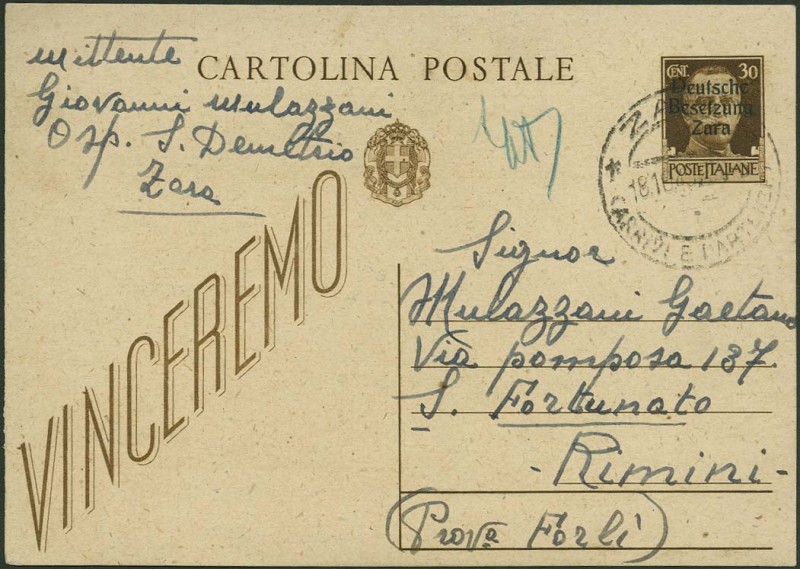 mittente
Giovanni Mulazzani
Osp. S. Demetrio
Zara
CARTOLINA POSTALE
CENT. 30
Deutsche
Besetzung
Zara
POSTE ITALIANE
ZARA
* ARRIVI E PARTENZE
VINCEREMO
Signor
Mulazzani Gaetano
Via pomposa 137
S. Fortunato
- Rimini -
(Prova Forlì)